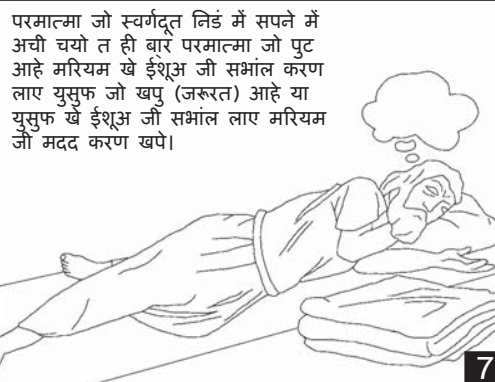 परमात्मा जो स्वर्गदूत निडं में सपने में
अची चयो त ही बा॒र परमात्मा जो पुट
आहे मरियम खे ईशूअ जी सभांल करण
लाए युसुफ जो खपु (जरूरत) आहे या
युसुफ खे ईशूअ जी सभांल लाए मरियम
जी मदद करण खपे।
7